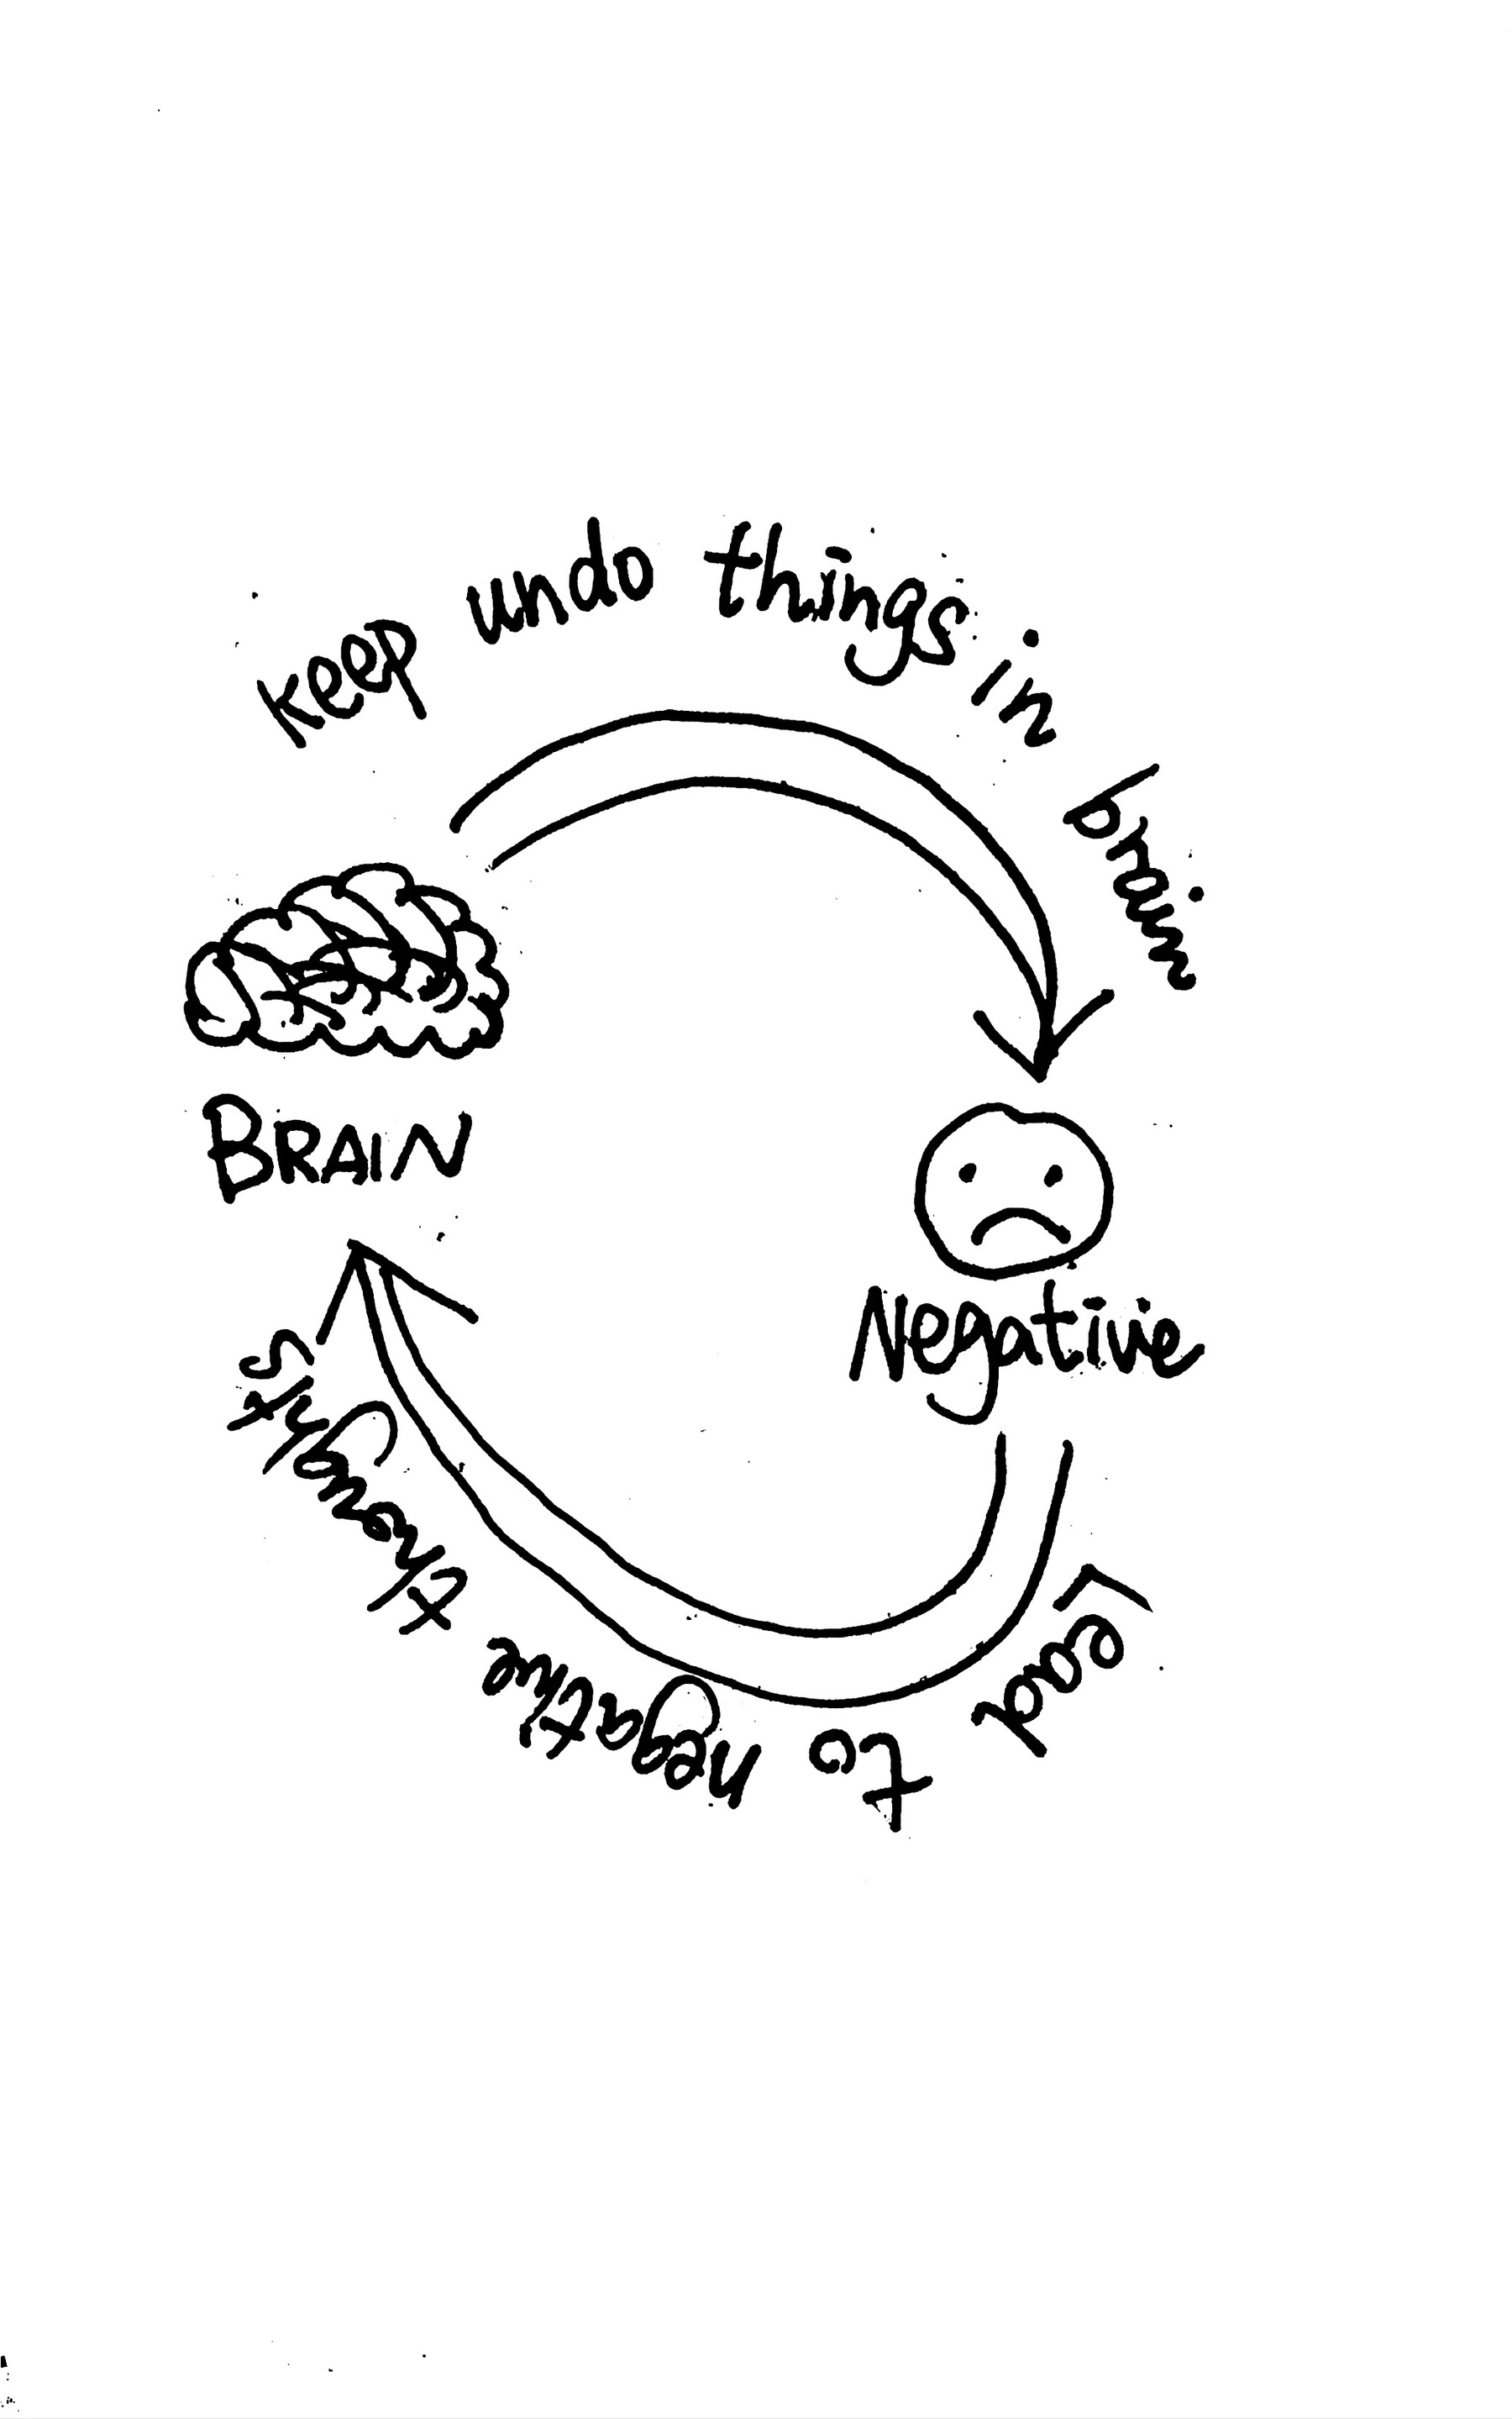 Keep undo things in brain
BRAIN
Negative
Lead to negative thoughts